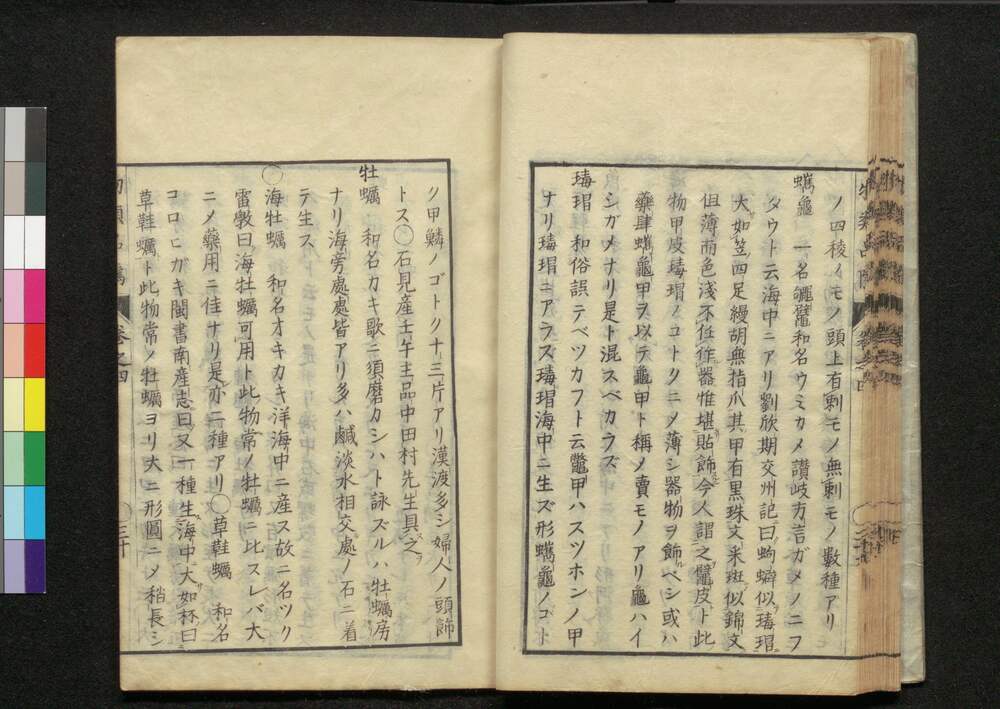 ノ四稜ノモノ頭上有刺モノ無刺モノ數種アリ
蠵龜 一名鼊和名ウミカメ讃岐方言ガメノニフ
タウト云海中ニアリ劉欣期交州記曰蚼蟕似瑇瑁
大如笠四足縵胡無指爪其甲有黒珠文采斑似錦文
但薄而色淺不任作器惟堪貼飾今人謂之鼊皮ト此
物甲皮瑇瑁ノコトクニメ薄シ器物ヲ飾ベシ或ハ
藥肆蠵龜甲ヲ以テ龜甲ト稱メ賣モノアリ龜ハイ
シガメナリ是ト混スベカラズ
瑇瑁 和俗誤テベツカフト云鼈甲ハスツホンノ甲
ナリ瑇瑁ニアラズ瑇瑁海中ニ生ズ形蠵龜ノゴト
ク甲鱗ノゴトク十三片アリ漢渡多シ婦人ノ頭飾
トス〇石見産壬午主品中田村先生具之
牡蠣 和名カキ歌ニ須磨カシハト詠ズルハ牡蠣房
ナリ海旁處處皆アリ多ハ鹹淡水相交處ノ石ニ着
テ生ス
〇海牡蠣 和名オキカキ洋海中ニ産ス故ニ名ツク
雷斅曰海牡蠣可用ト此物常ノ牡蠣ニ比スレバ大
ニメ藥用ニ佳ナリ是亦二種アリ〇草鞋蠣 和名
コロビガキ閩書南産志曰又一種生海中大如杯曰
草鞋蠣ト此物常ノ牡蠣ヨリ大ニ形圓ニメ稍長シ
卷之四
三十